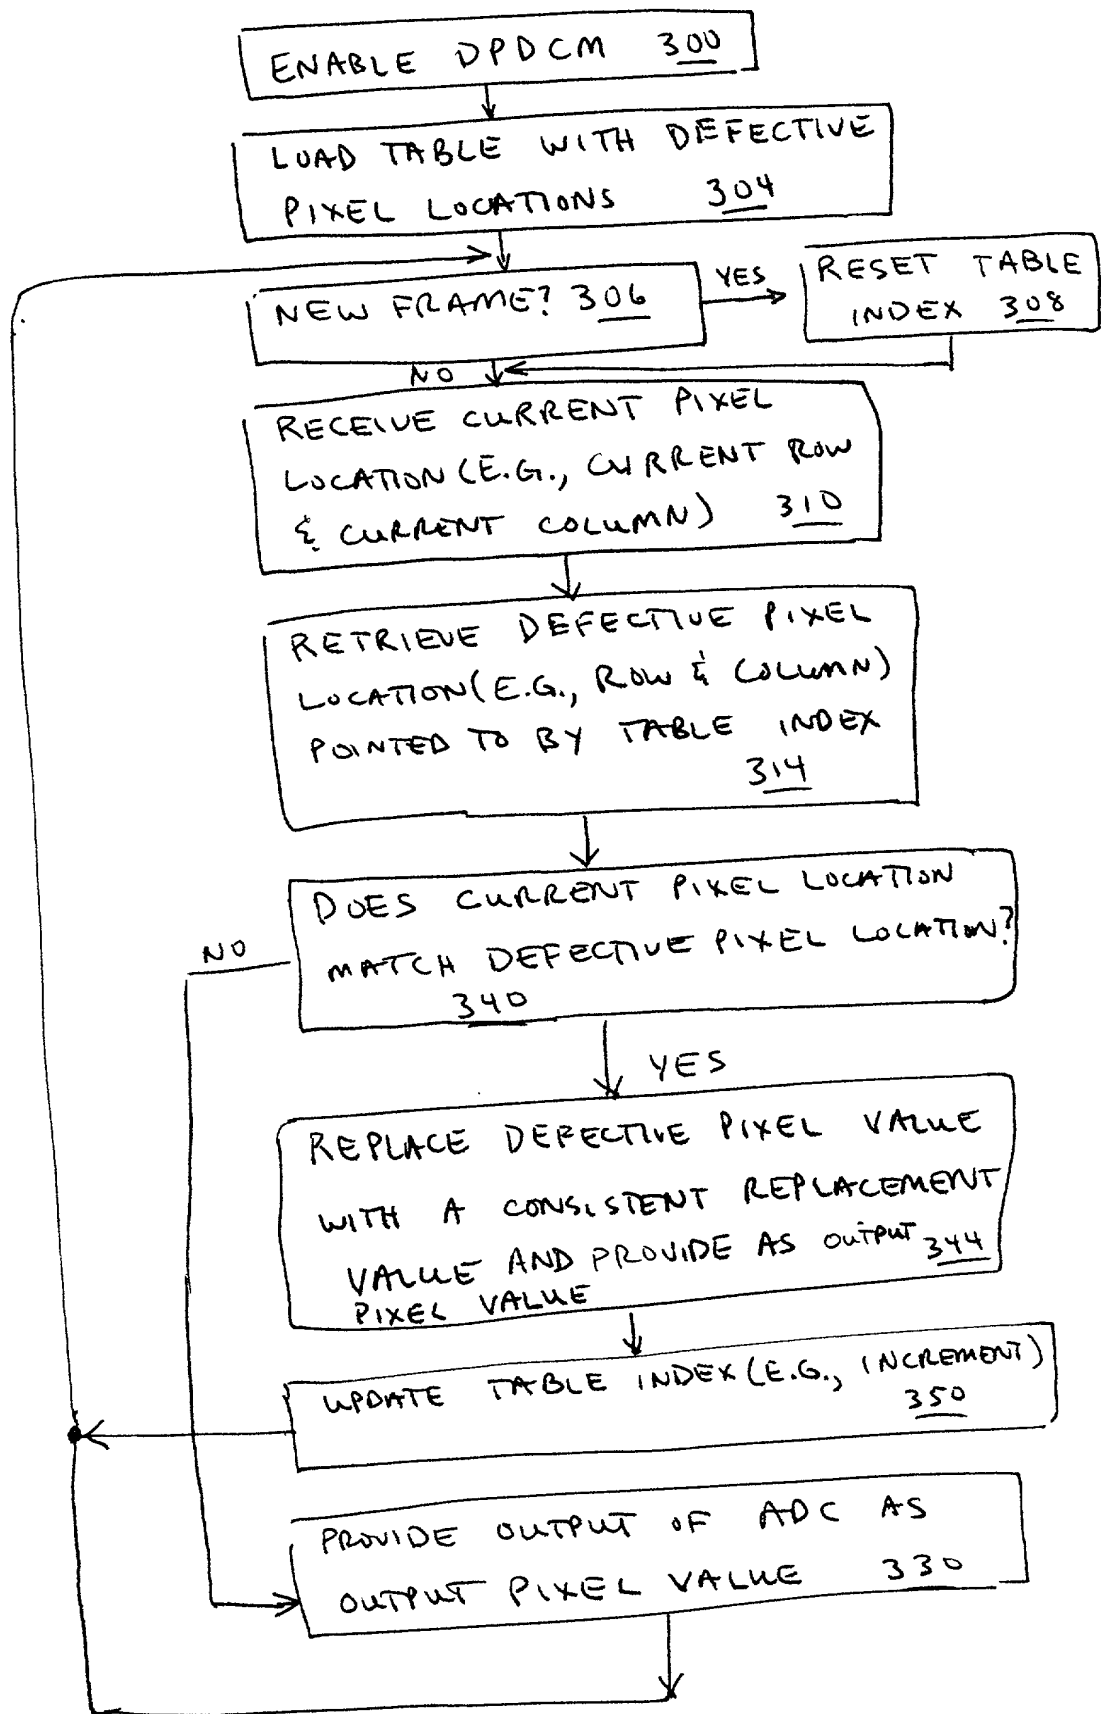 ENABLE DPDCM 300
LOAD TABLE WITH DEFECTIVE
PIXEL LOCATIONS 304
NEW FRAME? 306
YES
RESET TABLE
INDEX 308
NO
RECEIVE CURRENT PIXEL
LOCATION (E.G., CURRENT ROW
& CURRENT COLUMN) 310
RETRIEVE DEFECTIVE PIXEL
LOCATION (E.G., ROW & COLUMN)
POINTED TO BY TABLE INDEX
314
DOES CURRENT PIXEL LOCATION
MATCH DEFECTIVE PIXEL LOCATION?
340
NO
YES
REPLACE DEFECTIVE PIXEL VALUE
WITH A CONSISTENT REPLACEMENT
VALUE AND PROVIDE AS OUTPUT 344
PIXEL VALUE
UPDATE TABLE INDEX (E.G., INCREMENT)
350
PROVIDE OUTPUT OF ADC AS
OUTPUT PIXEL VALUE 330